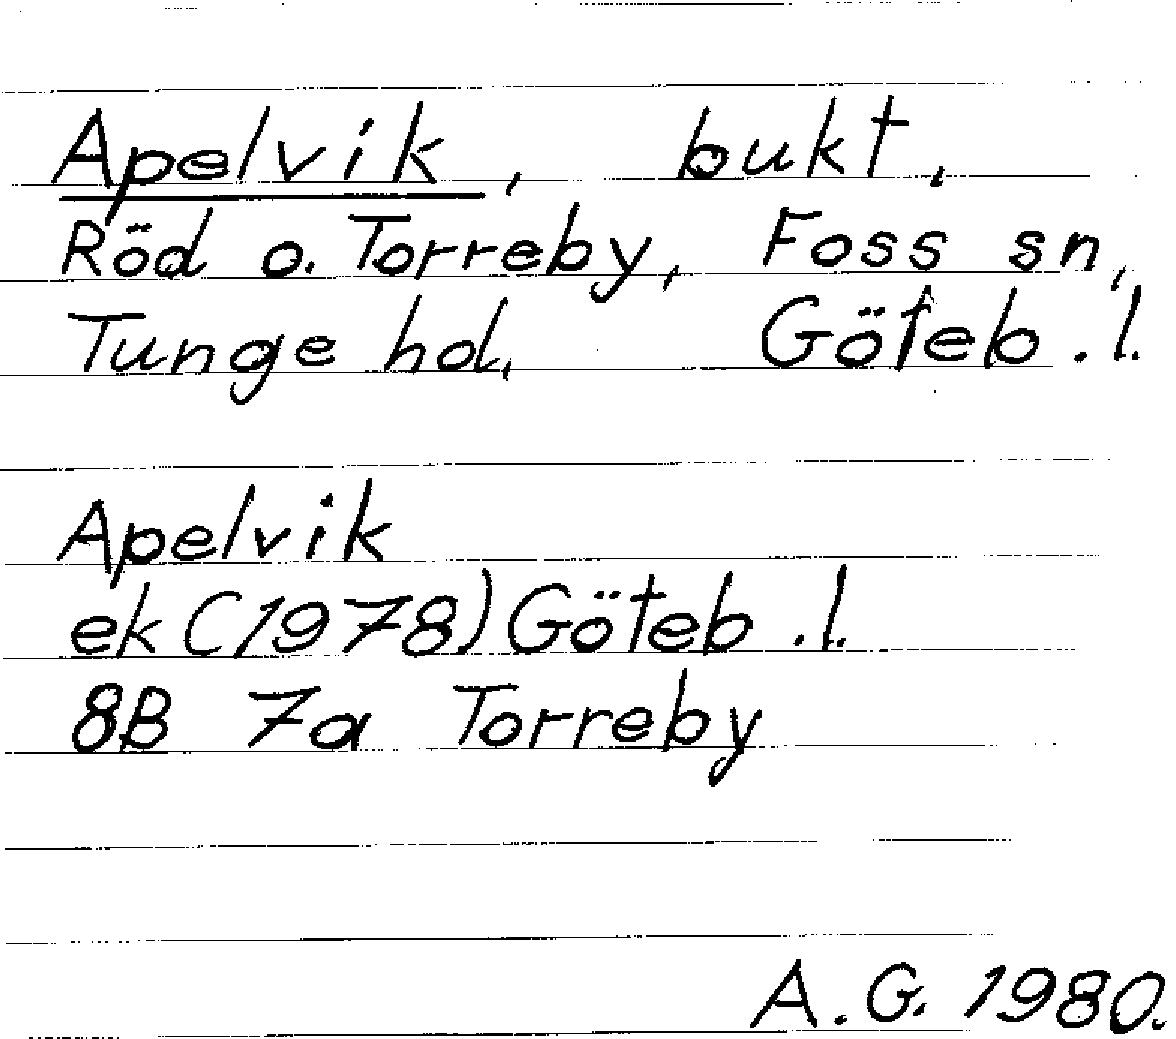 Apelvik, bukt,
Röd o. Torreby, Foss sn,
Tunge hd, Göteb.l.
Apelvik
ek (1978) Göteb.l.
8B 7a Torreby
A.G. 1980.